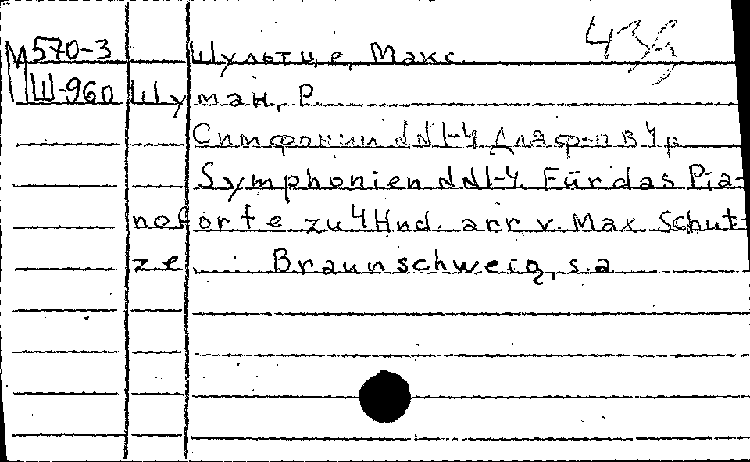 М 570-3 Шультце, Макс.
Ш-960 Шуман, Р.
Симфонии NN1-4 Для ф-п в 4 р
Symphonien NN1-4. Für das Pia-
noforte zu 4 Hnd. arr v. Max Schut-
ze Braunschweig, s.a